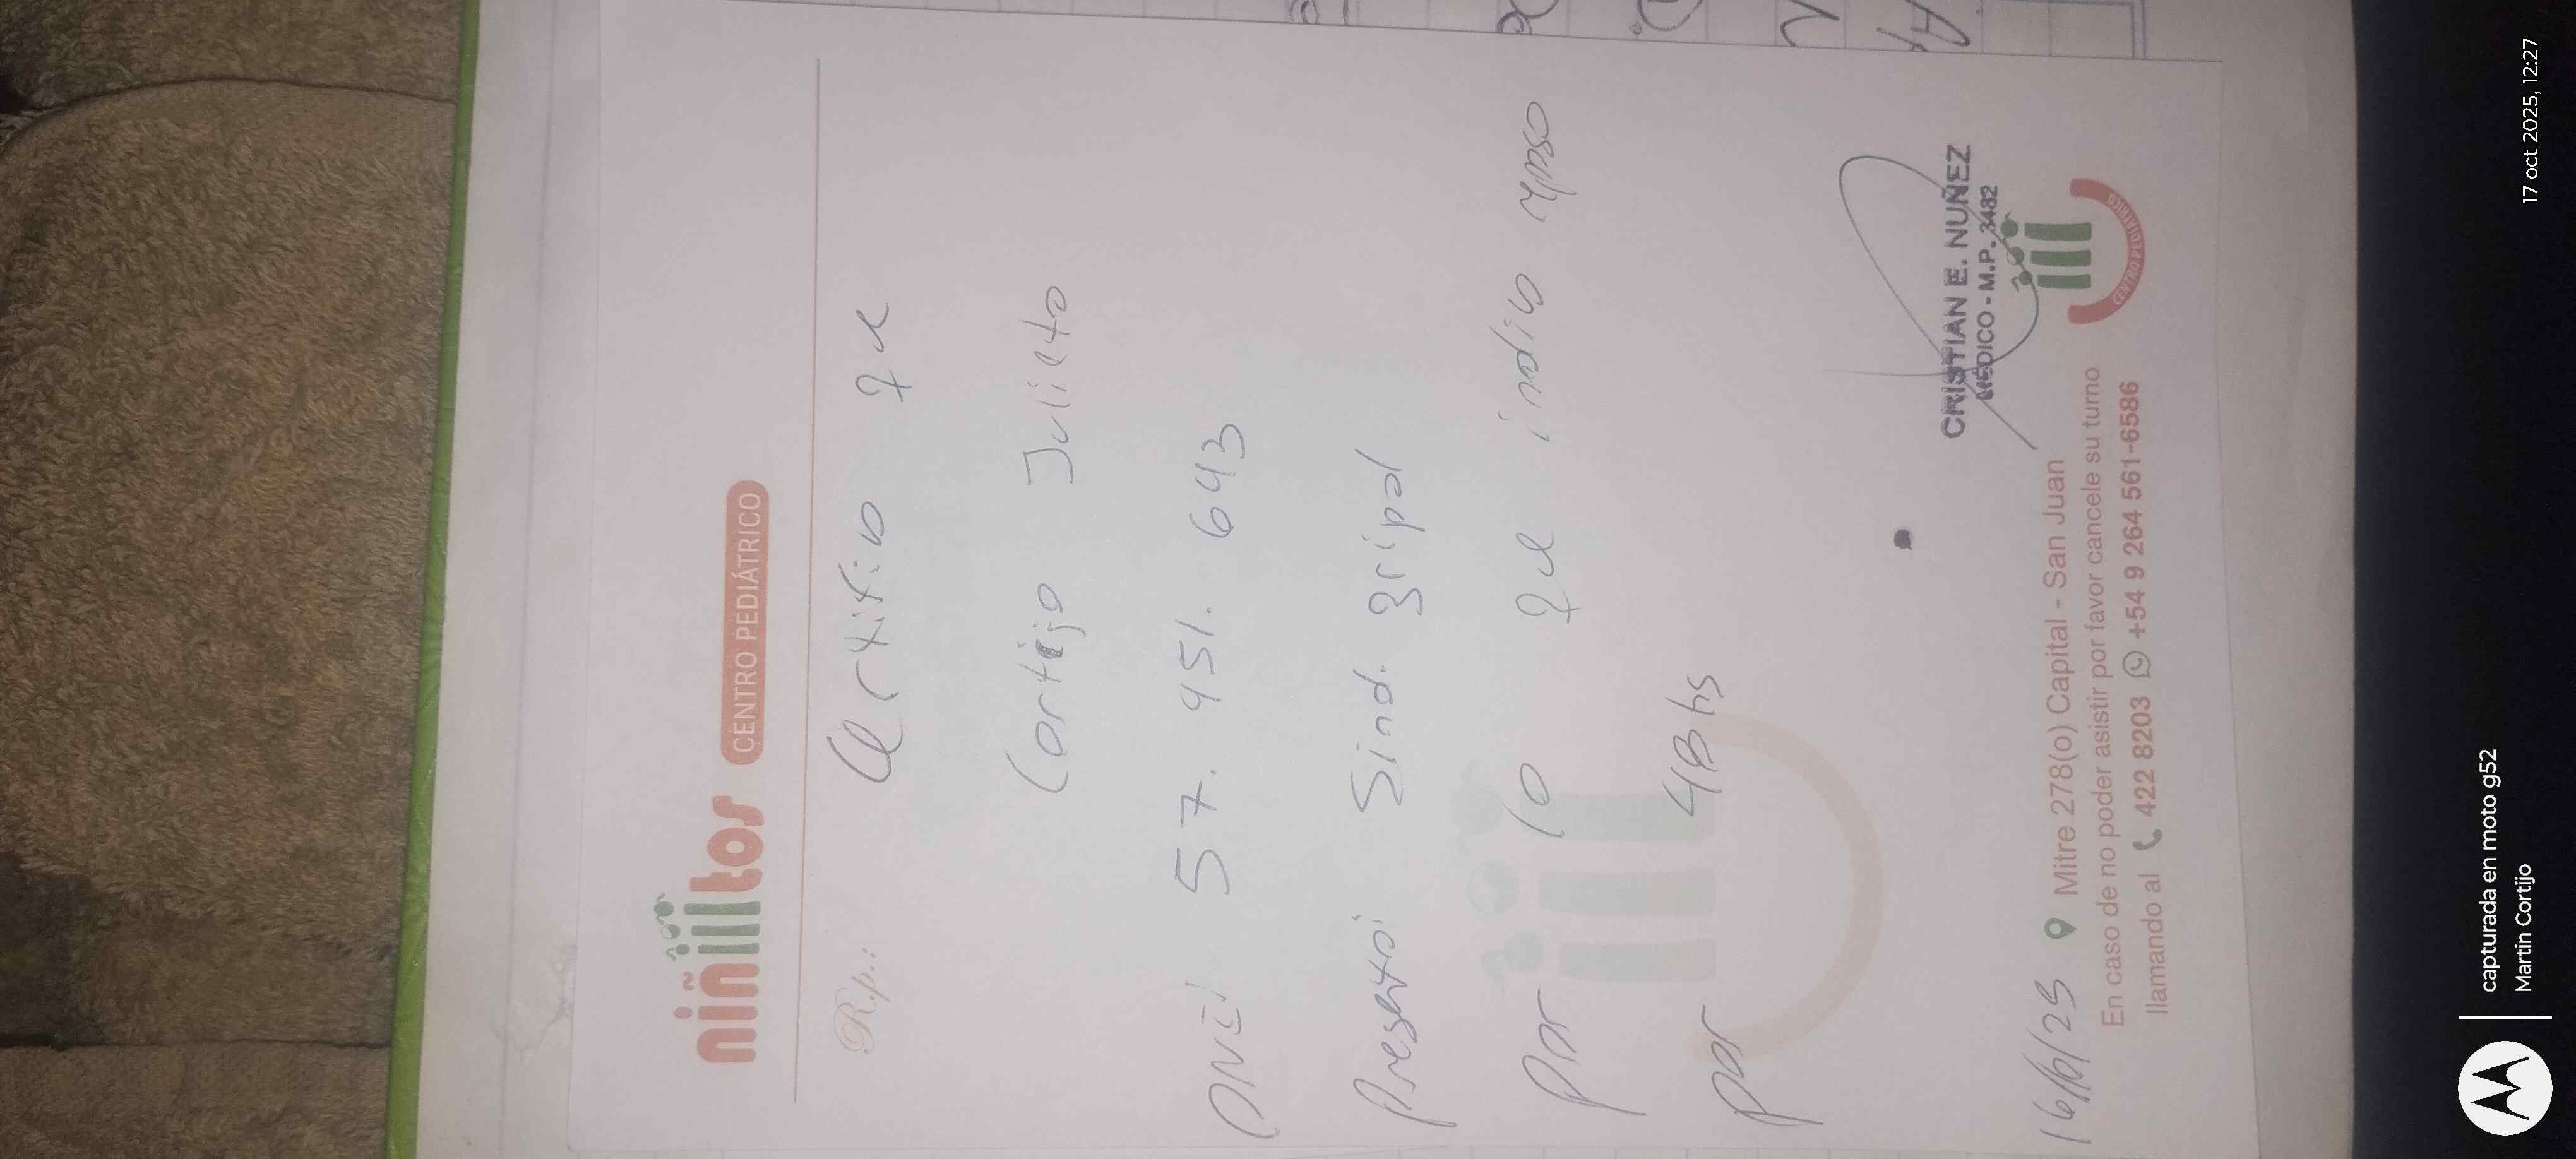 niñillos CENTRO PEDIÁTRICO
R.p.:
Certifico que
Cortijo Julieta
DNI: 57.951.643
Presentó Sind. gripal
Por lo que indico reposo
por 48 hs
CRISTIAN E. NUÑEZ
MÉDICO - M.P. 3482
CENTRO PEDIÁTRICO
16/10/25 Mitre 278(o) Capital - San Juan
En caso de no poder asistir por favor cancele su turno
llamando al 422 8203 +54 9 264 561-6586
capturada en moto g52
Martin Cortijo
17 oct 2025, 12:27